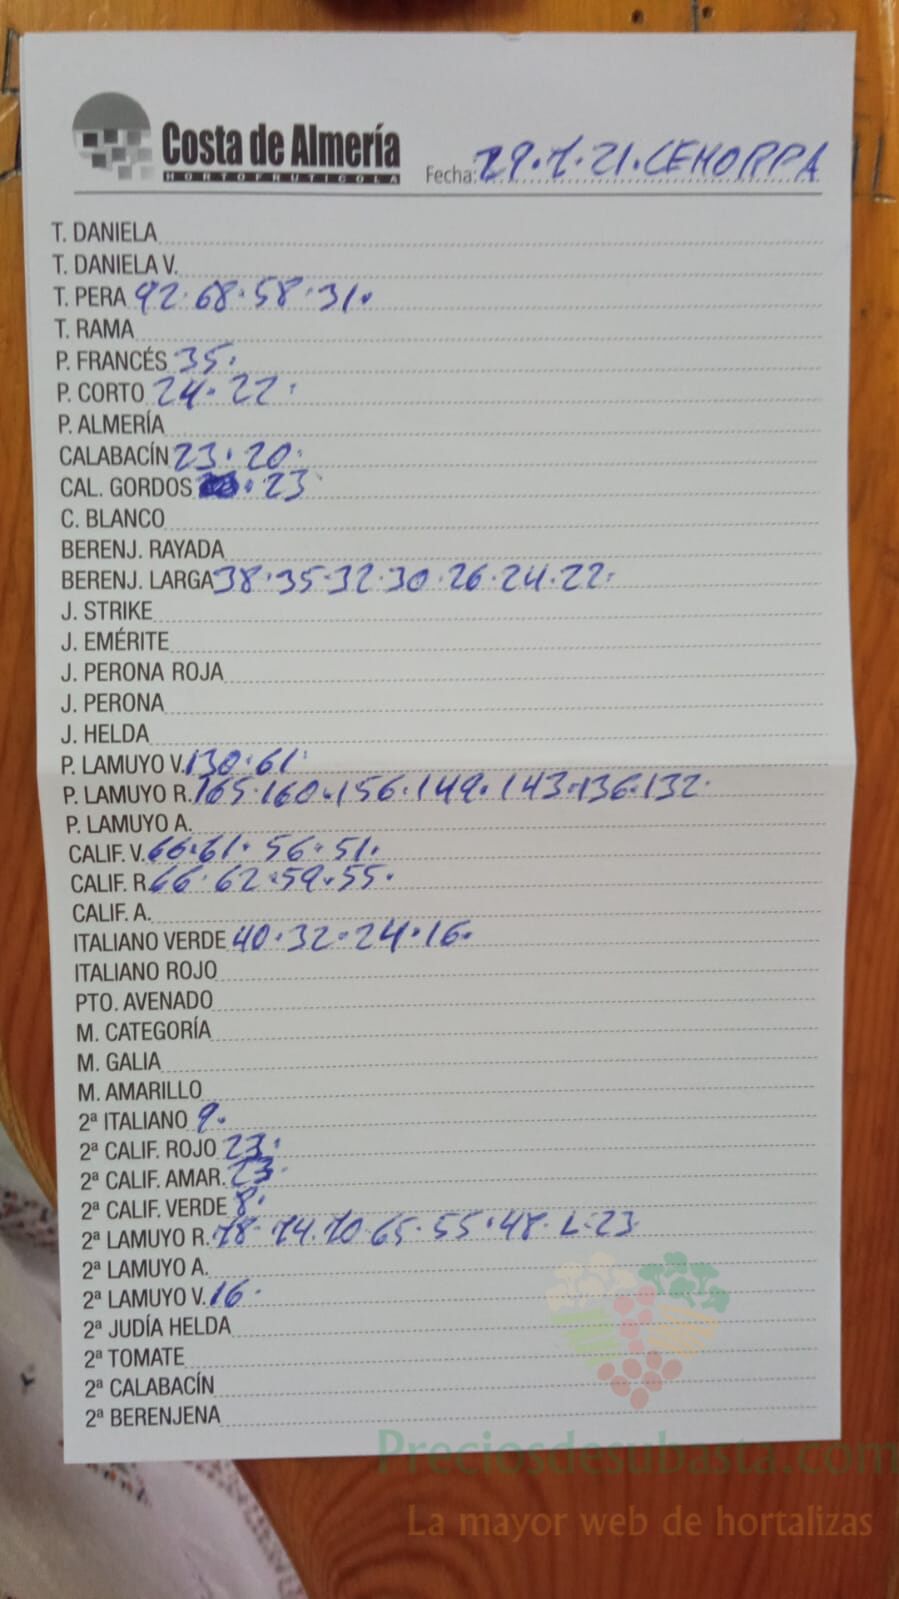 Costa de Almería
HORTOFRUTICOLA
Fecha: 29.1.21. CEHORPA
T. DANIELA
T. DANIELA V.
T. PERA 92.68.58.31.
T. RAMA
P. FRANCÉS 35.
P. CORTO 24.22.
P. ALMERÍA
CALABACÍN 23.20.
CAL. GORDOS . 23
C. BLANCO
BERENJ. RAYADA
BERENJ. LARGA 38.35.32.30.26.24.22.
J. STRIKE
J. EMÉRITE
J. PERONA ROJA
J. PERONA
J. HELDA
P. LAMUYO V. 130.61.
P. LAMUYO R. 165.160.156.149.143.136.132.
P. LAMUYO A.
CALIF. V. 66.61.56.51.
CALIF. R. 66.62.59.55.
CALIF. A.
ITALIANO VERDE 40.32.24.16.
ITALIANO ROJO
PTO. AVENADO
M. CATEGORÍA
M. GALIA
M. AMARILLO
2ª ITALIANO 9.
2ª CALIF. ROJO 23.
2ª CALIF. AMAR. 23.
2ª CALIF. VERDE 8.
2ª LAMUYO R. 78.74.70.65.55.48.L.23
2ª LAMUYO A.
2ª LAMUYO V. 16.
2ª JUDÍA HELDA
2ª TOMATE
2ª CALABACÍN
2ª BERENJENA
Preciosdesubasta.com
La mayor web de hortalizas